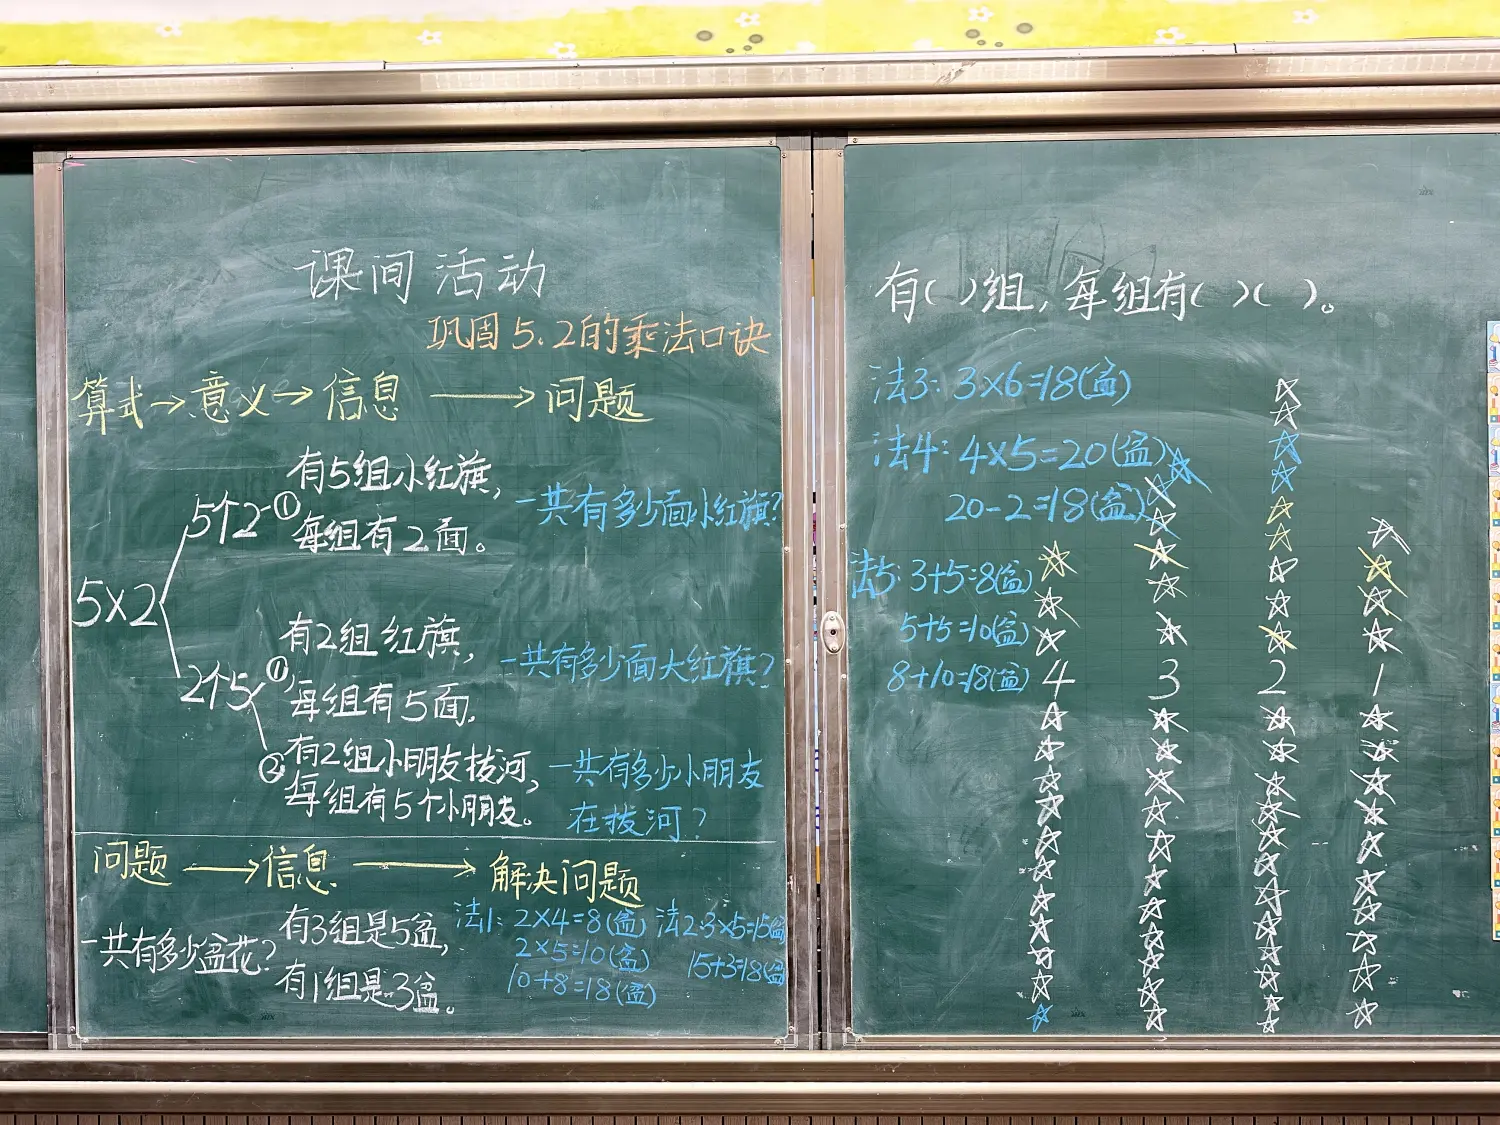 课间活动
巩固5.2的乘法口诀
算式→意义→信息→问题
5×2
5个2
①有5组小红旗，
每组有2面。
一共有多少面小红旗？
2个5
①有2组红旗，
每组有5面，
一共有多少面大红旗？
②有2组小朋友拔河，
每组有5个小朋友。
一共有多少小朋友
在拔河？
问题→信息→解决问题
一共有多少盆花？
有3组是5盆，
有1组是3盆。
法1：2×4=8(盆)
2×5=10(盆)
10+8=18(盆)
法2：3×5=15(盆)
15+3=18(盆)
有( )组，每组有( )( )。
法3：3×6=18(盆)
法4：4×5=20(盆)
20-2=18(盆)
法5：3+5=8(盆)
5+5=10(盆)
8+10=18(盆)
4 3 2 1